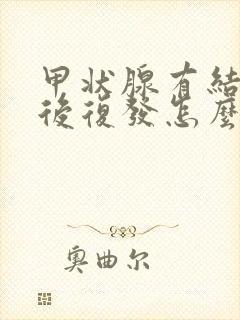 甲状腺有結
後復發怎麼
奥曲尔